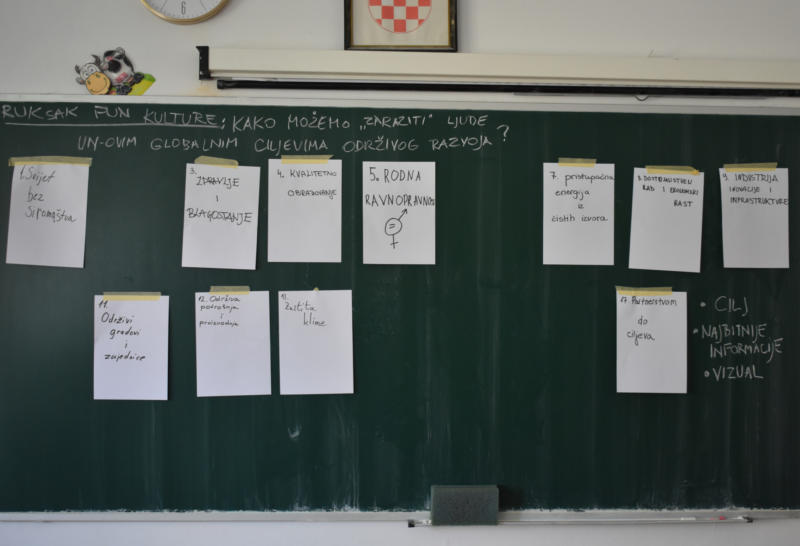 6
RUKSAK FUN KULTURE: KAKO MOŽEMO „ZARAZITI" LJUDE
UN-OVIM GLOBALNIM CILJEVIMA ODRŽIVOG RAZVOJA?
1. Svijet
bez
siromaštva
3.
ZDRAVLJE
I
BLAGOSTANJE
4. KVALITETNO
OBRAZOVANJE
5. RODNA
RAVNOPRAVNOST
=
7. pristupačna
energija
iz
čistih izvora
8. DOSTOJANSTVEN
RAD I EKONOMSKI
RAST
9. INDUSTRIJA
INOVACIJE I
INFRASTRUKTURE
11.
Održivi
gradovi
i
zajednice
12. Održiva
potrošnja
i
proizvodnja
13.
Zaštita
klime
17. Partnerstvom
do
ciljeva
• CILJ
• NAJBITNIJE
INFORMACIJE
• VIZUAL